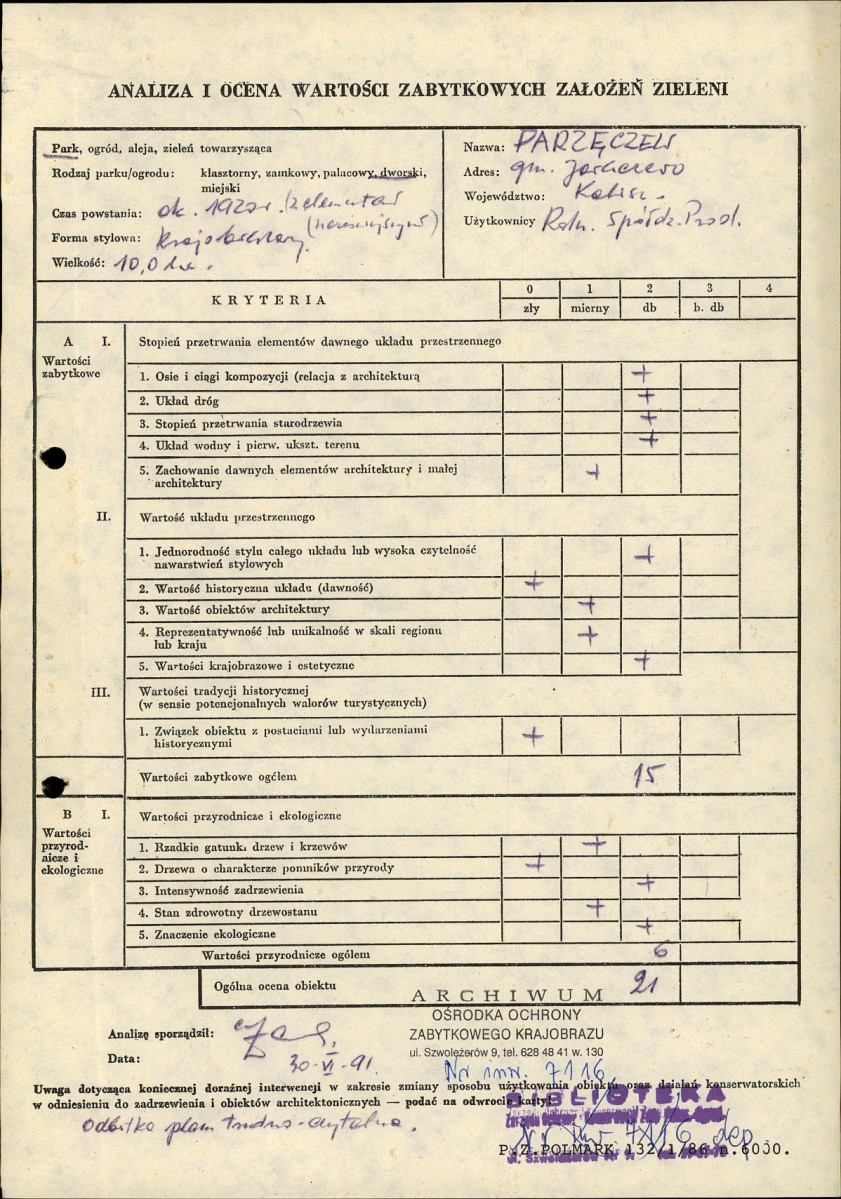 ANALIZA I OCENA WARTOŚCI ZABYTKOWYCH ZAŁOŻEŃ ZIELENI
Park, ogród, aleja, zieleń towarzysząca
Rodzaj parku/ogrodu: klasztorny, zamkowy, pałacowy, dworski,
miejski
Czas powstania: ok. 1920r. /z elementami
Forma stylowa: krajobrazowy
Wielkość: 10,0 ha.
Nazwa: PARZĘCZEW
Adres: gm. Jaraczewo
Województwo: Kalisz.
Użytkownicy Roln. Spółdz. Prod.
KRYTERIA
0 1 2 3 4
zły mierny db b. db
A I. Stopień przetrwania elementów dawnego układu przestrzennego
Wartości
zabytkowe
1. Osie i ciągi kompozycji (relacja z architekturą +
2. Układ dróg +
3. Stopień przetrwania starodrzewia +
4. Układ wodny i pierw. ukszt. terenu +
5. Zachowanie dawnych elementów architektury i małej
architektury +
II. Wartość układu przestrzennego
1. Jednorodność stylu całego układu lub wysoka czytelność
nawarstwień stylowych +
2. Wartość historyczna układu (dawność) +
3. Wartość obiektów architektury +
4. Reprezentatywność lub unikalność w skali regionu
lub kraju +
5. Wartości krajobrazowe i estetyczne +
III. Wartości tradycji historycznej
(w sensie potencjonalnych walorów turystycznych)
1. Związek obiektu z postaciami lub wydarzeniami
historycznymi +
Wartości zabytkowe ogółem 15
B I. Wartości przyrodnicze i ekologiczne
Wartości
przyrod-
nicze i
ekologiczne
1. Rzadkie gatunki drzew i krzewów +
2. Drzewa o charakterze pomników przyrody +
3. Intensywność zadrzewienia +
4. Stan zdrowotny drzewostanu +
5. Znaczenie ekologiczne +
Wartości przyrodnicze ogółem 6
Ogólna ocena obiektu 21
ARCHIWUM
OŚRODKA OCHRONY
ZABYTKOWEGO KRAJOBRAZU
ul. Szwoleżerów 9, tel. 628 48 41 w. 130
Analizę sporządził:
Data: 30-VI-91.
Nr inw. 7116
Uwaga dotycząca koniecznej doraźnej interwencji w zakresie zmiany sposobu użytkowania obiektu oraz działań konserwatorskich
w odniesieniu do zadrzewienia i obiektów architektonicznych — podać na odwrocie karty!
BIBLIOTEKA
Odbitka planu trudno-czytalna.
Nr inw. 7116 dep
P.Z.POLMARK 132/1/86 n.6000.